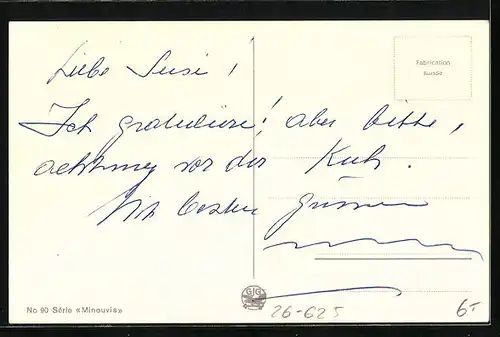 Liebe Susi!
Fabrication
suisse
Ich gratuliere! aber bitte,
achtung vor der Kuh.
Mit besten Grüssen
GJG
No 90 Série «Minouvis»
26-625
6.-